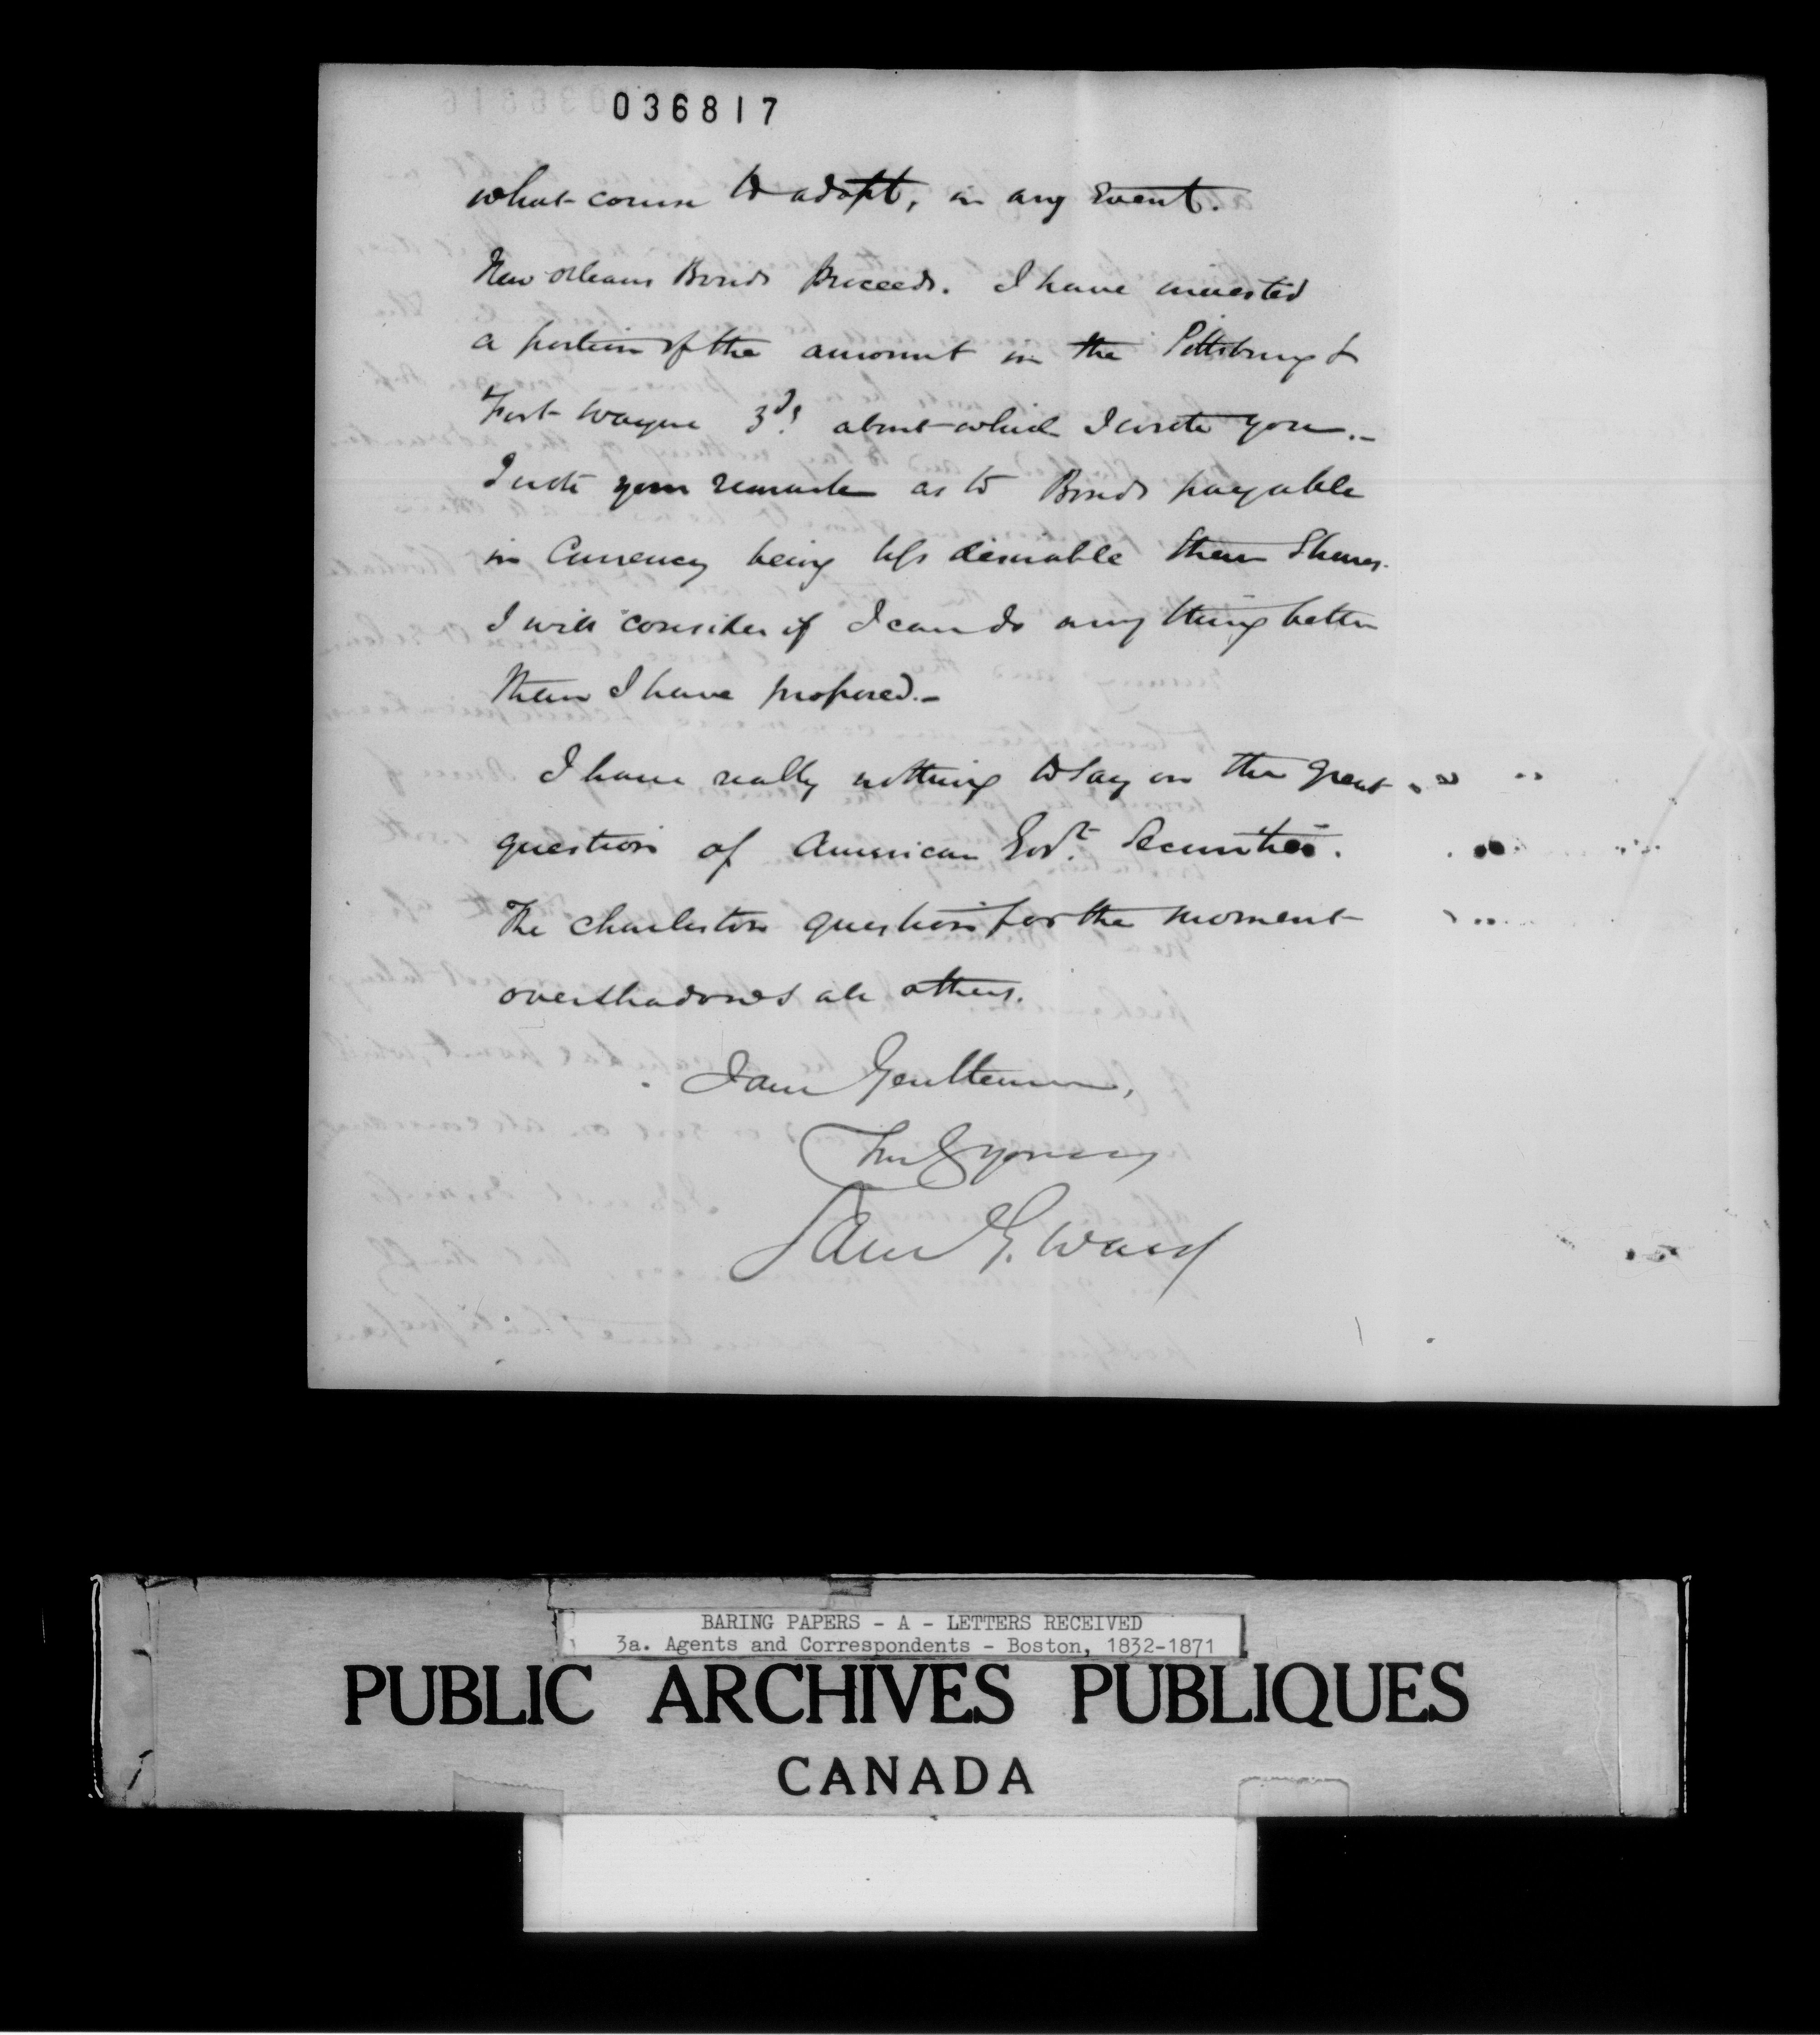 036817
what course to adopt, in any event.
New Orleans Bonds Proceeds. I have invested
a portion of the amount in the Pittsburg &
Fort Wayne 3ds about which I wrote you._
I note your remarks as to Bonds payable
in Currency being less desirable than Shares.
I will consider if I can do any thing better
than I have proposed._
I have really nothing to say on the great
question of American Govt. Securities.
The Charleston question for the moment
overshadows all others.
I am Gentlemen,
Truly yours
Sam G. Ward
BARING PAPERS - A - LETTERS RECEIVED
3a. Agents and Correspondents - Boston, 1832-1871
PUBLIC ARCHIVES PUBLIQUES
CANADA